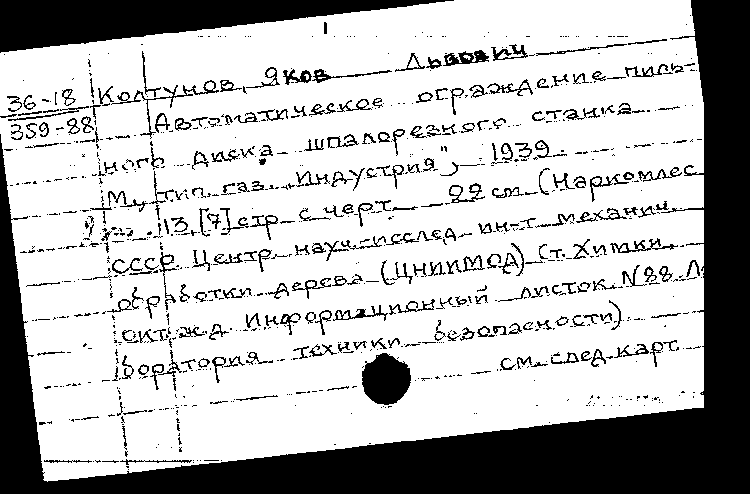 36-18
359-88
Колтунов, Яков Львович
Автоматическое ограждение пиль-
ного диска шпалорезного станка
М., тип. газ. „Индустрия", 1939.
13, [7] стр. с черт. 22 см. (Наркомлес
СССР. Центр. науч.-исслед. ин-т механич.
обработки дерева (ЦНИИМОД) Ст. Химки,
Окт. ж.д. Информационный листок. N88. Ла-
боратория техники безопасности)
см. след. карт